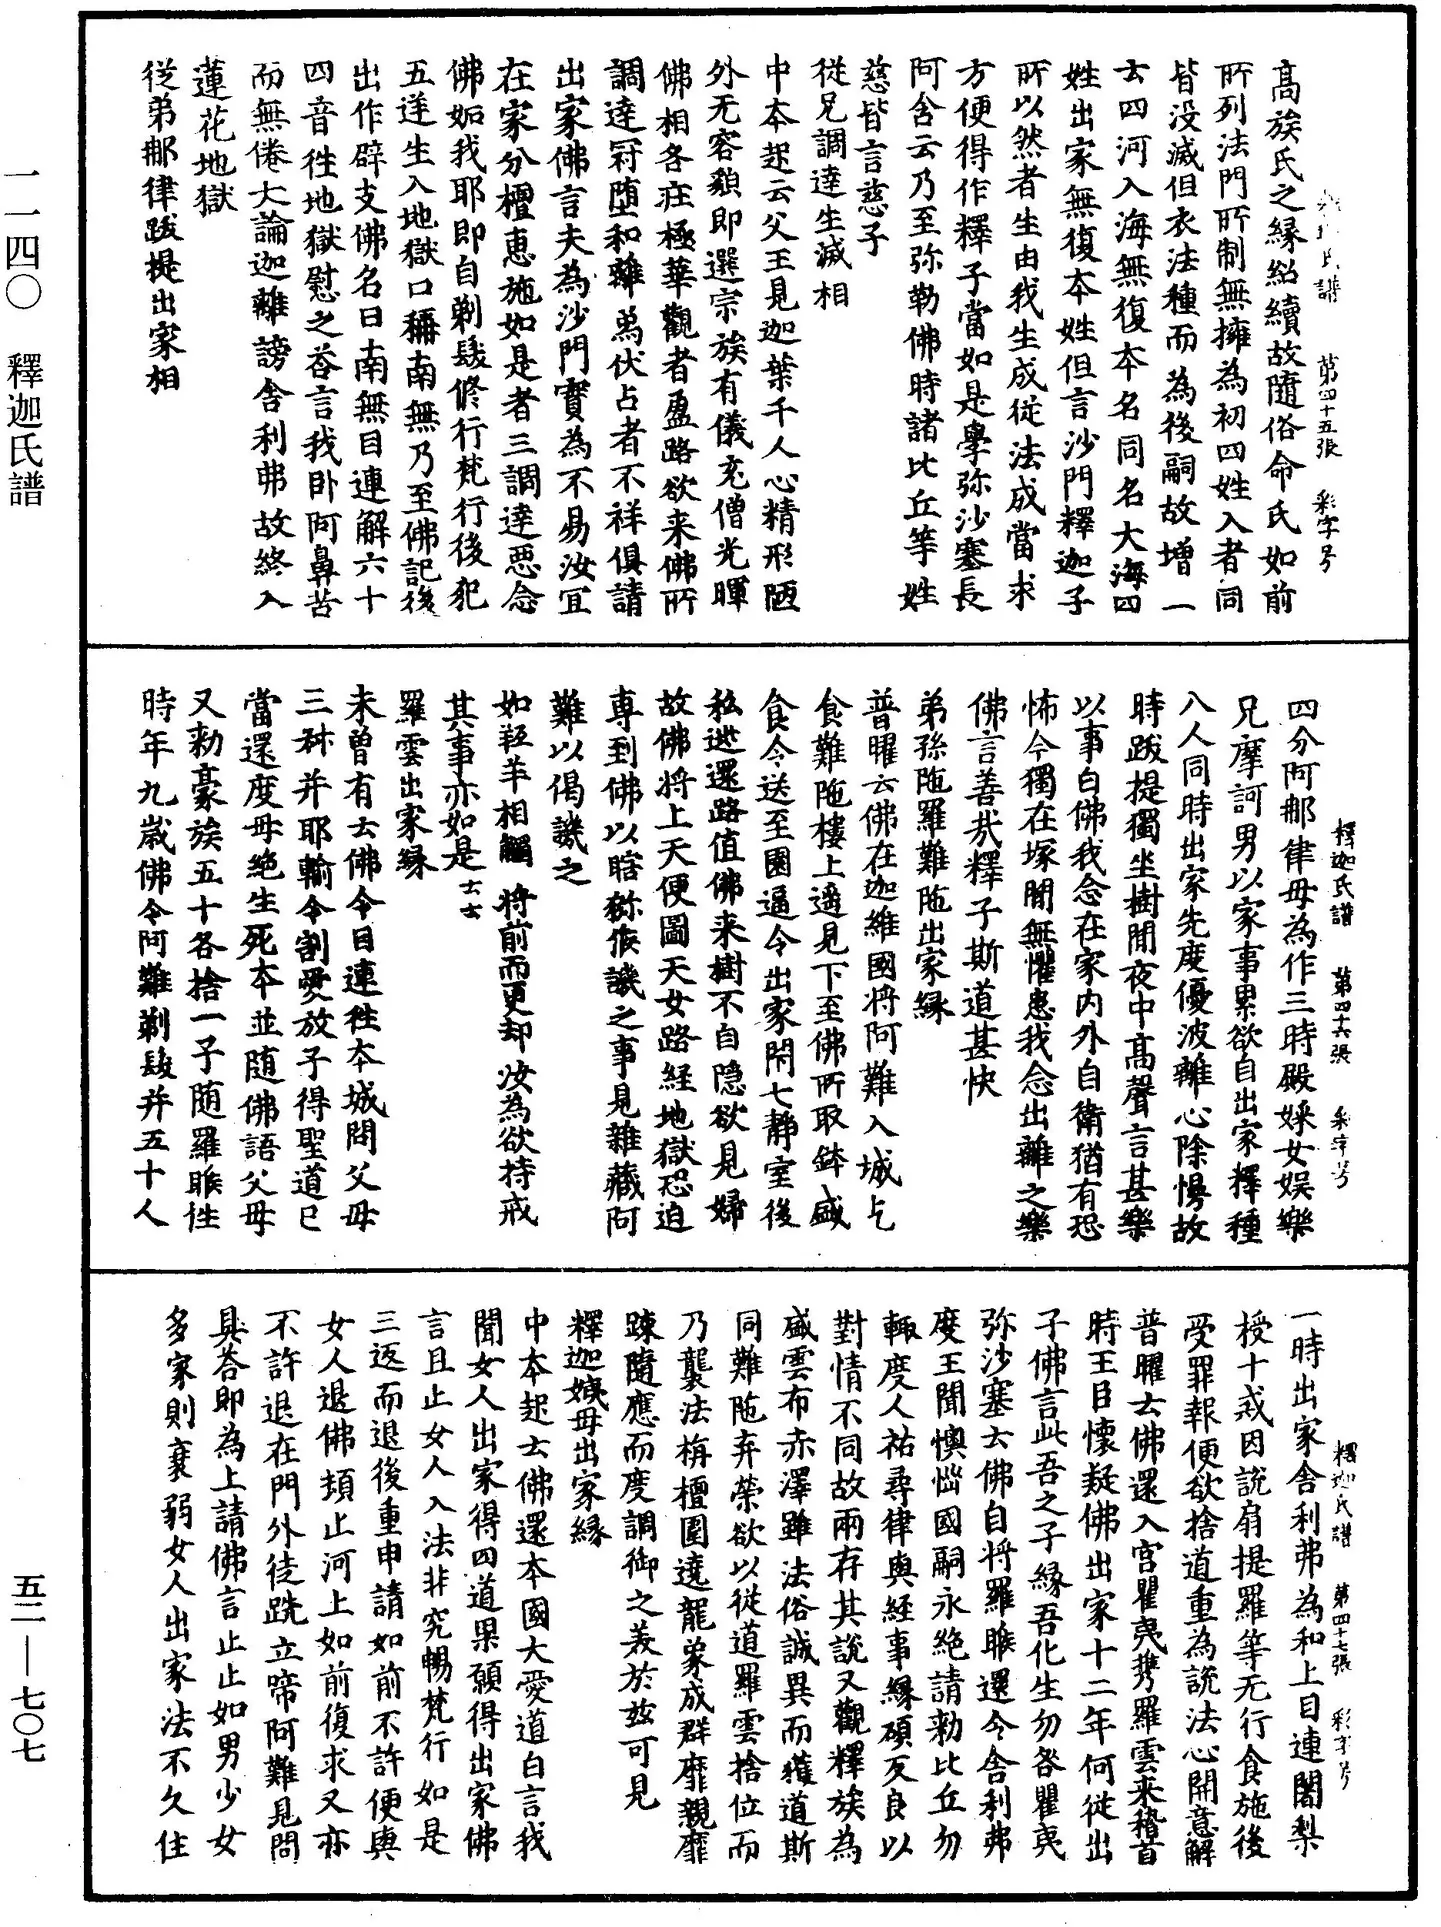 一一四〇　釋迦氏譜
五二—七〇七
釋迦氏譜　第四十五張　彩字号
高族氏之緣紹續故隨俗命氏如前
所列法門所制無擁為初四姓入者同
皆没滅但衣法種而為後嗣故增一
云四河入海無復本名同名大海四
姓出家無復本姓但言沙門釋迦子
所以然者生由我生成從法成當求
方便得作釋子當如是學弥沙塞長
阿含云乃至弥勒佛時諸比丘等姓
慈皆言慈子
從兄調達生滅相
中本起云父王見迦葉千人心精形陋
外无容顏即選宗族有儀充僧光暉
佛相各庄極華觀者盈路欲来佛所
調達冠墮和離為伏占者不祥俱請
出家佛言夫為沙門實為不易汝冝
在家分檀惠施如是者三調達惡念
佛妬我耶即自剃髮脩行梵行後犯
五逆生入地獄口稱南無乃至佛記後
出作辟支佛名曰南無目連解六十
四音徃地獄慰之荅言我卧阿鼻苦
而無倦大論迦離謗舍利弗故終入
蓮花地獄
從弟那律跋提出家相
釋迦氏譜　第四十六張　彩字号
四分阿那律母為作三時殿婇女娱樂
兄摩訶男以家事累欲自出家釋種
八人同時出家先度優波離心除憍故
時跋提獨坐樹閒夜中高聲言甚樂
以事白佛我念在家内外自衛猶有恐
怖今獨在塚閒無懼患我念出離之樂
佛言善㢤釋子斯道甚快
弟孫陁羅難陁出家緣
普曜云佛在迦維國将阿難入城乞
食難陁樓上遥見下至佛所取鉢盛
食令送至園逼令出家閇七静室後
私逃還路值佛来樹不自隐欲見婦
故佛将上天便圖天女路経地獄恐迫
專到佛以瞎狝猴譏之事見雜藏阿
難以偈譏之
如羝羊相觸　将前而更却　汝為欲持戒
其事亦如是云云
羅雲出家緣
未曾有云佛令目連徃本城問父母
三種并耶輸令割愛放子得聖道已
當還度母絶生死本並随佛語父母
又勅豪族五十各捨一子随羅睺徃
時年九歳佛令阿難剃髮并五十人
釋迦氏譜　第四十七張　彩字号
一時出家舍利弗為和上目連闍梨
授十戒因説扇提羅等无行食施後
受罪報便欲捨道重為説法心開意解
普曜云佛還入宫瞿夷携羅雲来稽首
時王臣懷疑佛出家十二年何從出
子佛言此吾之子緣吾化生勿咎瞿夷
弥沙塞云佛自将羅睺還令舍利弗
度王聞懊惱國嗣永絶請勅比丘勿
輙度人祐尋律與經事緣碩反良以
對情不同故兩存其説又觀釋族為
盛雲布赤澤雖法俗誠異而獲道斯
同難陁弃榮欲以從道羅雲捨位而
乃襲法栴檀圍遶龍象成群靡親靡
踈隨應而度調御之美於兹可見
釋迦姨母出家緣
中本起云佛還本國大愛道白言我
聞女人出家得四道果願得出家佛
言且止女人入法非究暢梵行如是
三返而退後重申請如前不許便與
女人退佛頓止河上如前復求又亦
不許退在門外徒跣立啼阿難見問
具荅即為上請佛言止止如男少女
多家則衰弱女人出家法不久住